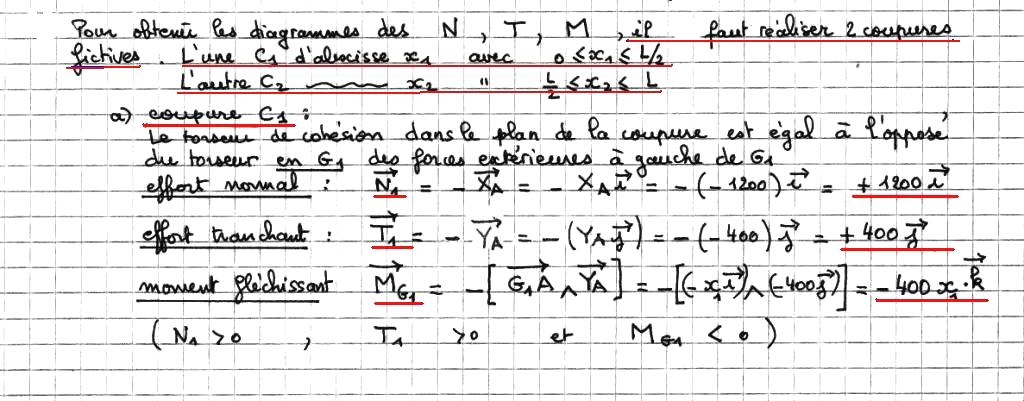 Pour obtenir les diagrammes des N, T, M, il faut réaliser 2 coupures
fictives. L'une C₁ d'abscisse x₁ avec 0 ≤ x₁ ≤ L/2
L'autre C₂ ~~~ x₂ " L/2 ≤ x₂ ≤ L
a) coupure C₁ :
Le torseur de cohésion dans le plan de la coupure est égal à l'opposé
du torseur en G₁ des forces extérieures à gauche de G₁
effort normal : N₁⃗ = - X_A⃗ = - X_A i⃗ = - (-1200) i⃗ = + 1200 i⃗
effort tranchant : T₁⃗ = - Y_A⃗ = - (Y_A j⃗) = - (-400) j⃗ = + 400 j⃗
moment fléchissant M_G₁⃗ = - [G₁A⃗ ∧ Y_A⃗] = - [(-x₁ i⃗) ∧ (-400 j⃗)] = - 400 x₁ . k⃗
(N₁ > 0 , T₁ > 0 et M_G₁ < 0)